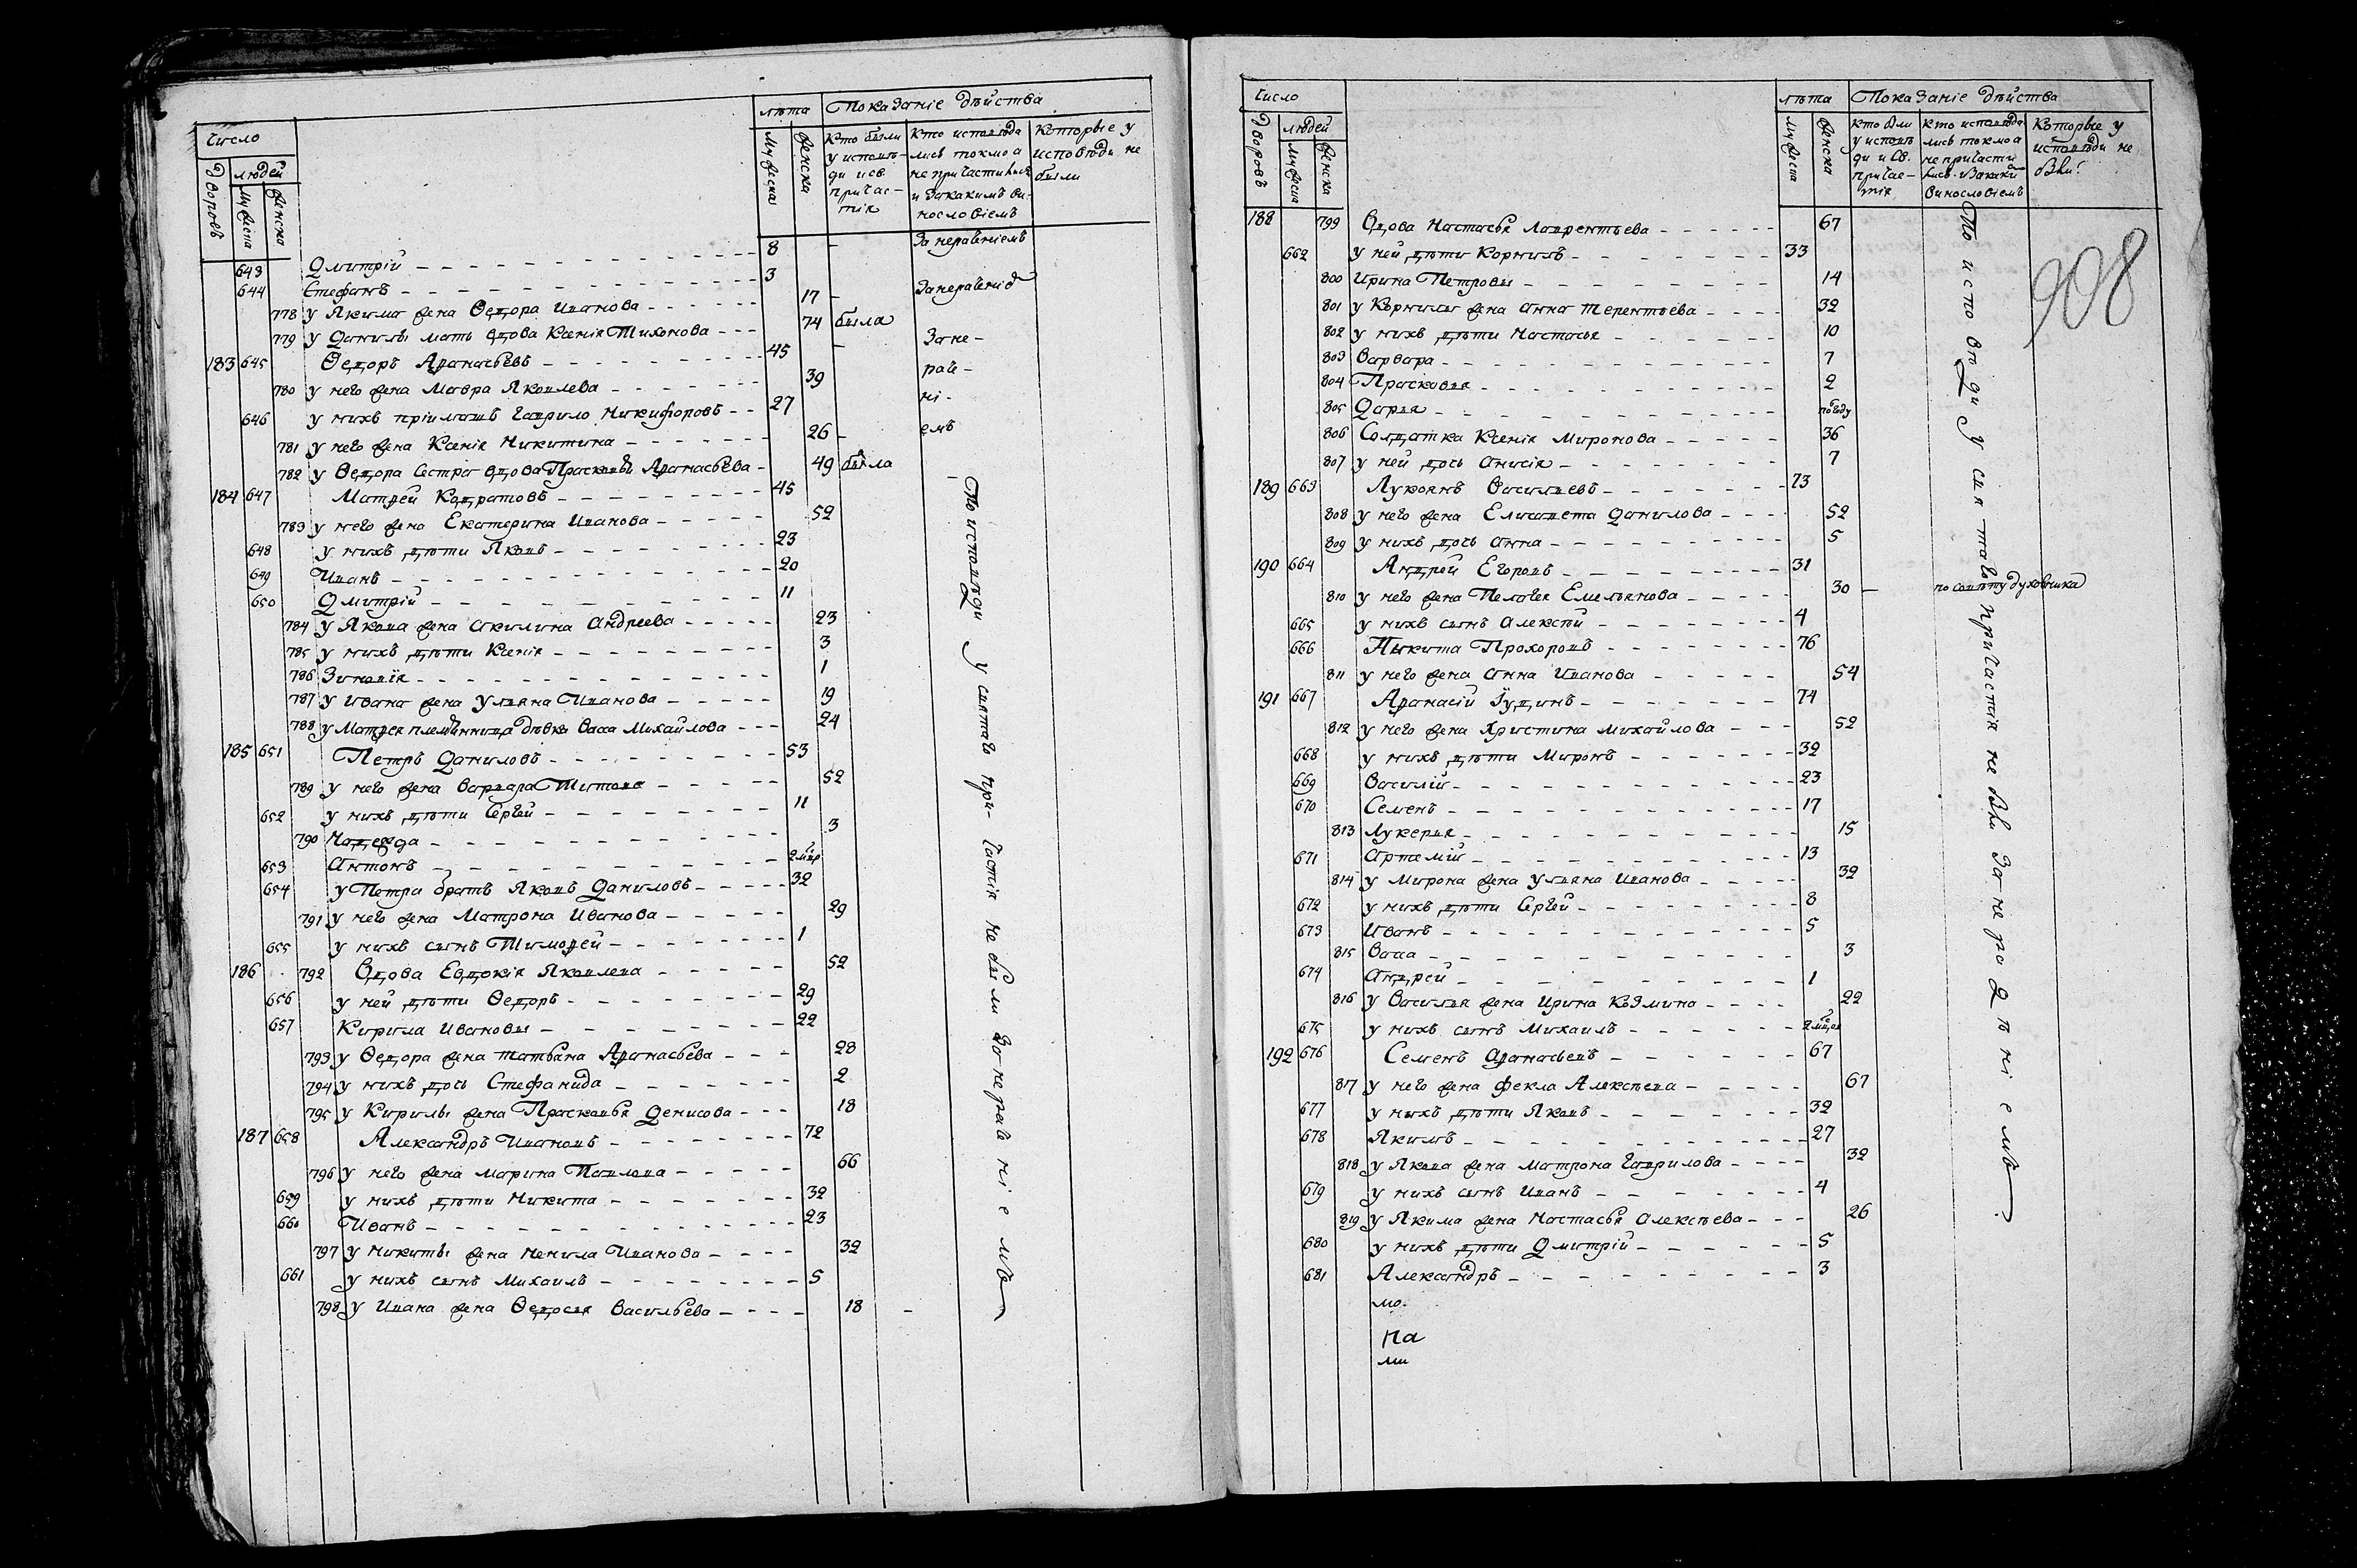 Число
лѣта
Показаніе дѣйства
Дворовъ
людей
мужеска
женска
мужеска
женска
Кто были у исповѣди и св. причастія
Кто исповѣдались токмо а не причастились и за какимъ винословіемъ
Которые у исповѣди не были
643 Дмитрій 8 - За нераденіемъ
644 Стефанъ 3
778 у Якима жена Ѳедора Иванова 17 - За нераденіе
779 у Данилы мать вдова Ксенія Тихонова 74 была
183 645 Ѳедоръ Афанасьевъ 45 - За не-
780 у него жена Мавра Яковлева 39 раде-
646 у нихъ пріимашъ Гаврило Никифоровъ 27 ні-
781 у него жена Ксенія Никитина 26 - емъ
782 у Ѳедора сестра вдова Прасковья Афанасьева 49 была
184 647 Матфей Кодратовъ 45 -
783 у него жена Екатерина Иванова 52
648 у нихъ дѣти Яковъ 23
649 Иванъ 20
650 Дмитрій 11
784 у Якова жена Акилина Андреева 23
785 у нихъ дѣти Ксенія 3
786 Зиновія 1
787 у Ивана жена Ульяна Иванова 19
788 у Матфея племянница дѣвка Васса Михайлова 24
185 651 Петръ Даниловъ 53
789 у него жена Варвара Титова 52
652 у нихъ дѣти Сергей 11
790 Надежда 3
653 Антонъ
654 у Петра братъ Яковъ Даниловъ 32
791 у него жена Матрона Иванова 29
655 у нихъ сынъ Тимофей 1
186 792 Вдова Евдокія Яковлева 52
656 у ней дѣти Ѳедоръ 29
657 Кирила Ивановы 22
793 у Ѳедора жена Татьяна Афанасьева 28
794 у нихъ дочь Стефанида 2
795 у Кирилы жена Прасковья Денисова 18
187 658 Александръ Ивановъ 72
796 у него жена Марина Павлова 66
659 у нихъ дѣти Никита 32
660 Иванъ 23
797 у Никиты жена Ненила Иванова 32
661 у нихъ сынъ Михаилъ 5
798 у Ивана жена Ѳедосья Васильева 18 -
У исповѣди у святаго причастія не были за нераденіемъ
Число
лѣта
Показаніе дѣйства
Дворовъ
людей
мужеска
женска
мужеска
женска
Кто были у исповѣди и св. причастія
Кто исповѣдались токмо а не причастились и за какимъ винословіемъ
Которые у исповѣди не были
908
188 799 Вдова Настасья Лаврентьева 67
662 у ней дѣти Корнилъ 33
800 Ирина Петровы 14
801 у Корнилы жена Анна Терентьева 32
802 у нихъ дѣти Настасья 10
803 Варвара 7
804 Прасковья 2
805 Дарья полгоду
806 Солдатка Ксенія Миронова 36
807 у ней дочь Анисія 7
189 663 Лукоянъ Васильевъ 73
808 у него жена Елисавета Данилова 52
809 у нихъ дочь Анна 5
190 664 Андрей Егоровъ 31
810 у него жена Пелагея Емельянова 30 - по совѣту духовника
665 у нихъ сынъ Алексѣй 4
666 Никита Прохоровъ 76
811 у него жена Анна Иванова 54
191 667 Афанасій Іудинъ 74
812 у него жена Христина Михайлова 52
668 у нихъ дѣти Миронъ 32
669 Василій 23
670 Семенъ 17
813 Лукерья 15
671 Артемій 13
814 у Мирона жена Ульяна Иванова 32
672 у нихъ дѣти Сергей 8
673 Иванъ 5
815 Васса 3
674 Андрей 1
816 у Василья жена Ирина Козмина 22
675 у нихъ сынъ Михаилъ
192 676 Семенъ Афанасьевъ 67
817 у него жена Фекла Алексѣева 67
677 у нихъ дѣти Яковъ 32
678 Якимъ 27
818 у Якова жена Матрона Гаврилова 32
679 у нихъ сынъ Иванъ 4
819 у Якима жена Настасья Алексѣева 26
680 у нихъ дѣти Дмитрій 5
681 Александръ 3
мо.
на
ми
У исповѣди у святаго причастія не были за нерадѣніемъ